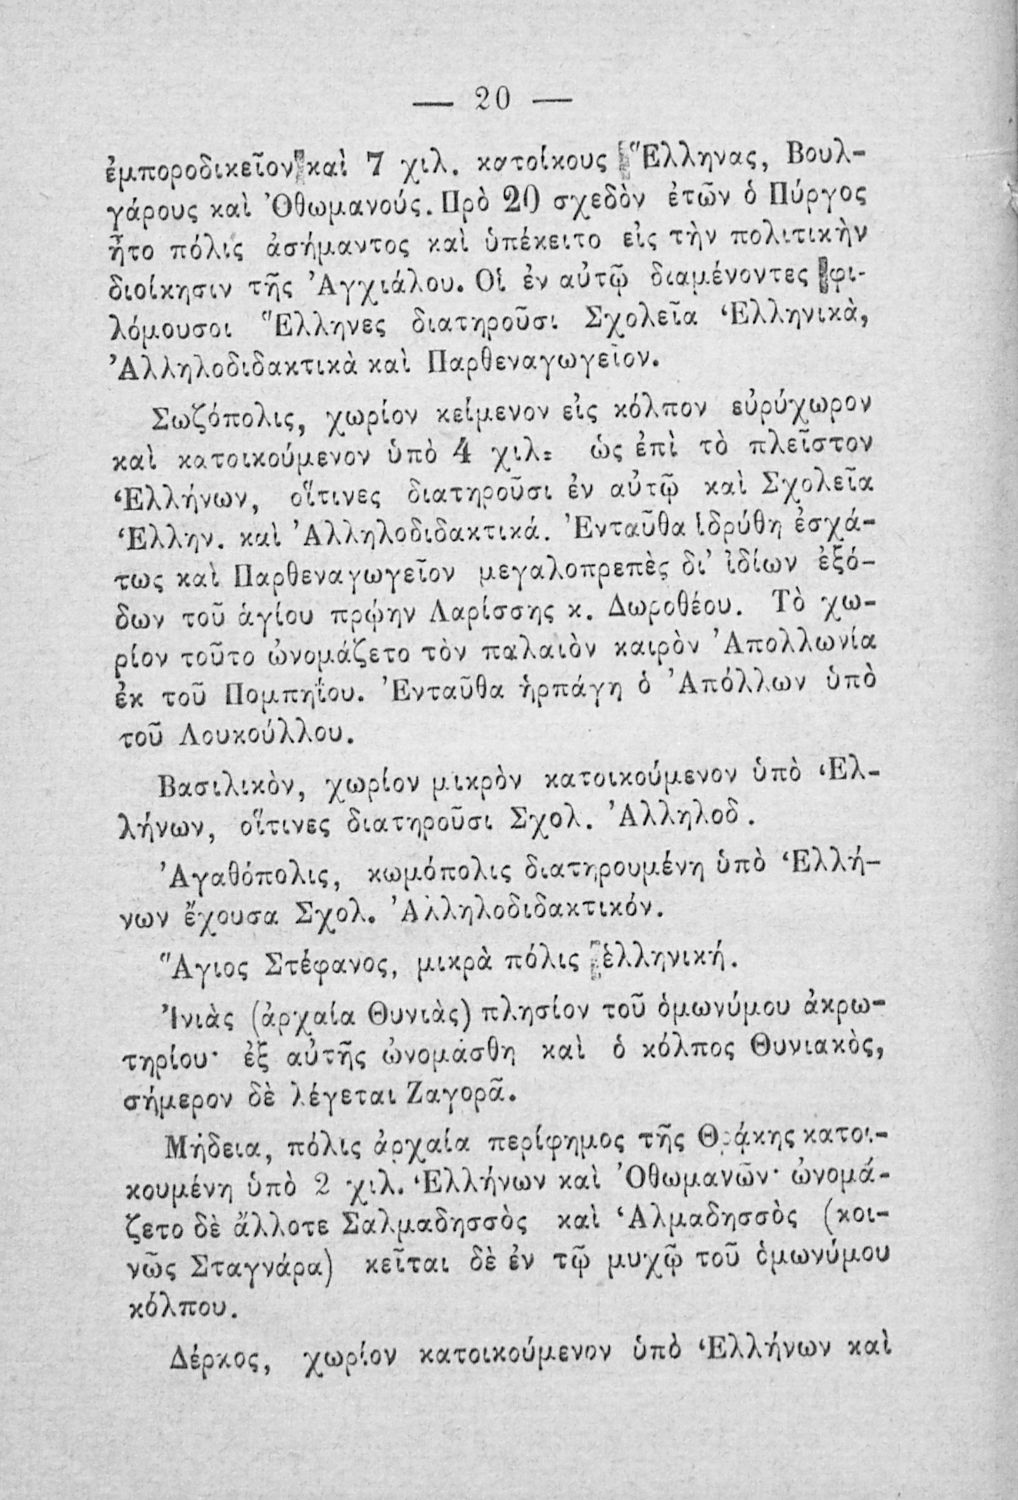 — 20 —
ἐμποροδικεῖον καὶ 7 χιλ. κατοίκους Ἕλληνας, Βουλ-
γάρους καὶ Ὀθωμανούς. Πρὸ 20 σχεδὸν ἐτῶν ὁ Πύργος
ἦτο πόλις ἀσήμαντος καὶ ὑπέκειτο εἰς τὴν πολιτικὴν
διοίκησιν τῆς Ἀγχιάλου. Οἱ ἐν αὐτῷ διαμένοντες φι-
λόμουσοι Ἕλληνες διατηροῦσι Σχολεῖα Ἑλληνικὰ,
Ἀλληλοδιδακτικὰ καὶ Παρθεναγωγεῖον.
Σωζόπολις, χωρίον κείμενον εἰς κόλπον εὐρύχωρον
καὶ κατοικούμενον ὑπὸ 4 χιλ. ὡς ἐπὶ τὸ πλεῖστον
Ἑλλήνων, οἵτινες διατηροῦσι ἐν αὐτῷ καὶ Σχολεῖα
Ἑλλην. καὶ Ἀλληλοδιδακτικά. Ἐνταῦθα ἱδρύθη ἐσχά-
τως καὶ Παρθεναγωγεῖον μεγαλοπρεπὲς δι' ἰδίων ἐξό-
δων τοῦ ἁγίου πρῴην Λαρίσσης κ. Δωροθέου. Τὸ χω-
ρίον τοῦτο ὠνομάζετο τὸν παλαιὸν καιρὸν Ἀπολλωνία
ἐκ τοῦ Πομπηΐου. Ἐνταῦθα ἡρπάγη ὁ Ἀπόλλων ὑπὸ
τοῦ Λουκούλλου.
Βασιλικὸν, χωρίον μικρὸν κατοικούμενον ὑπὸ Ἑλ-
λήνων, οἵτινες διατηροῦσι Σχολ. Ἀλληλοδ.
Ἀγαθόπολις, κωμόπολις διατηρουμένη ὑπὸ Ἑλλή-
νων ἔχουσα Σχολ. Ἀλληλοδιδακτικόν.
Ἅγιος Στέφανος, μικρὰ πόλις ἑλληνική.
Ἰνιὰς (ἀρχαία Θυνιὰς) πλησίον τοῦ ὁμωνύμου ἀκρω-
τηρίου· ἐξ αὐτῆς ὠνομάσθη καὶ ὁ κόλπος Θυνιακὸς,
σήμερον δὲ λέγεται Ζαγορᾶ.
Μήδεια, πόλις ἀρχαία περίφημος τῆς Θράκης κατοι-
κουμένη ὑπὸ 2 χιλ. Ἑλλήνων καὶ Ὀθωμανῶν· ὠνομά-
ζετο δὲ ἄλλοτε Σαλμαδησσὸς καὶ Ἁλμαδησσὸς (κοι-
νῶς Σταγνάρα) κεῖται δὲ ἐν τῷ μυχῷ τοῦ ὁμωνύμου
κόλπου.
Δέρκος, χωρίον κατοικούμενον ὑπὸ Ἑλλήνων καὶ